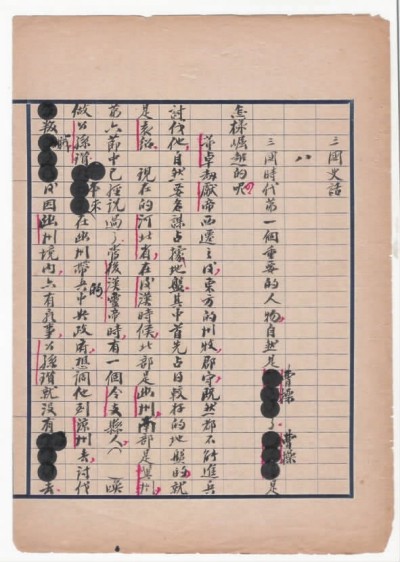 三國史話
八
三國時代第一個重要的人物，自然是曹操了。曹操是
怎樣崛起的呢？
董卓劫獻帝西遷之後，東方的州牧、郡守，既然都不能進兵
討伐他，自然要各謀占據地盤。其中首先占得較好的地盤的，就
是袁紹。現在的河北省，在後漢時候，北部是幽州，南部是冀州，
第六節中已經說過了。當後漢靈帝時，有一個令支縣人，
做公孫瓚，本來在幽州帶兵的。中央政府想調他到涼州去討伐
叛 後因幽州境內亦有亂事，公孫瓚就沒有 去。